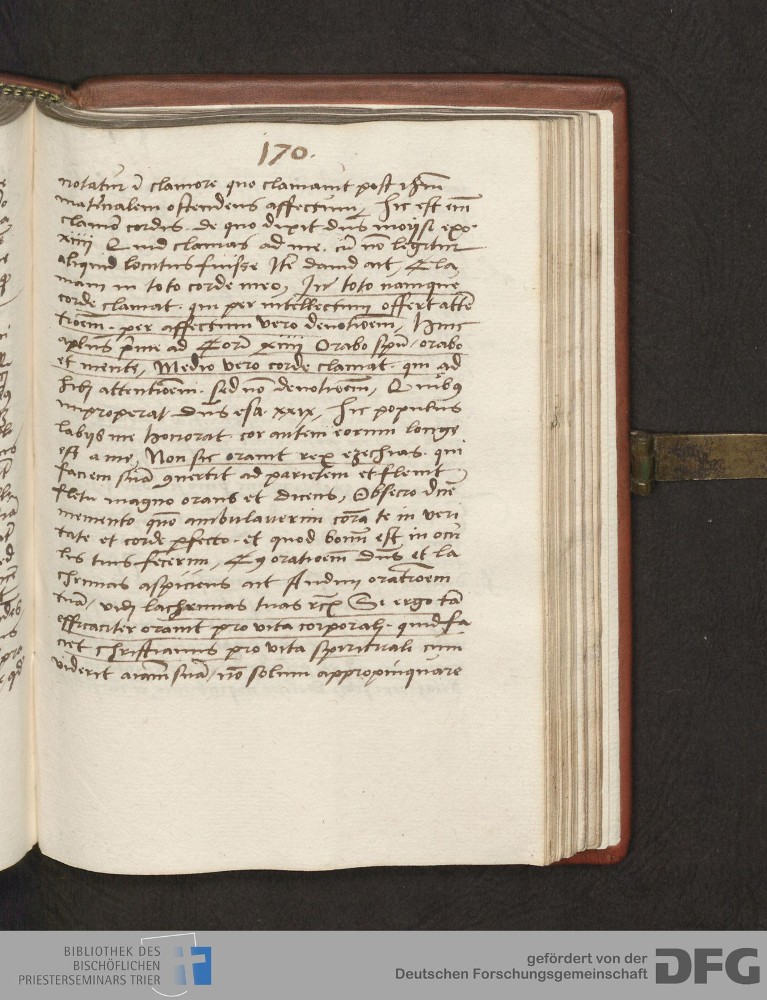 170.
notatur ī clamore quo clamauit post Ihm̄
maternalem ostendens affectum, Hic est em̄
clamor cordis. de quo dixit dn̄s moysi exo.
xiiii Quid clamas ad me. cū nō legitur
aliquid locutus fuisse Itē dauid ait, Cla
maui in toto corde meo, In toto namque
corde clamat. qui per intellectum offert attē
tioem̄. per affectum vero deuotioem̄, Hinc
apl̄us prime ad Cori xiiii Orabo spū, orabo
et mente, Medio vero corde clamat. qui ad
hibz attentioem̄. sed nō deuotioem̄, Quibꝰ
improperat dn̄s esa. xxix, Hic populus
labijs me honorat cor autem eorum longe
est a me, Non sic orauit rex ezechias. qui
faciem suā ꝯuertit ad parietem et fleuit
fletu magno orans et dicens, Obsecro dn̄e
memento quō ambulauerim corā te in veri
tate et corde ꝑfecto. et quod bonū est in ocu
lis tuis fecerim, Cꝰ orationem̄ dn̄s et la
chrimas aspiciens ait Audiui orationem
tuā, vidi lachrimas tuas rc̄ Si ergo tā
efficaciter orauit pro vita corporali. quid fa
ciet christianus pro vita spirituali cum
viderit aīam suā, nō solum appropinquare
BIBLIOTHEK DES
BISCHÖFLICHEN
PRIESTERSEMINARS TRIER
gefördert von der
Deutschen Forschungsgemeinschaft
DFG